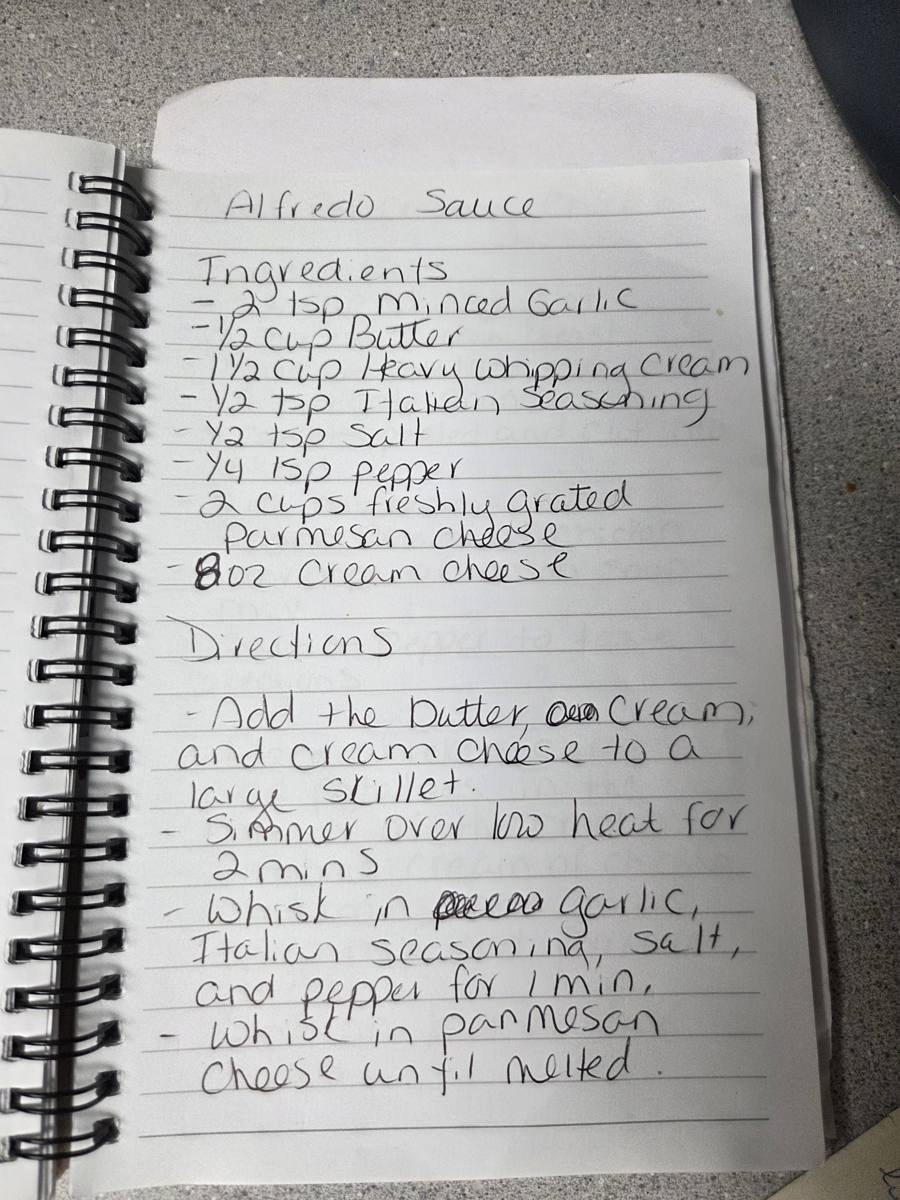 Alfredo Sauce
Ingredients
- 2 tsp minced Garlic
- 1/2 cup Butter
- 1 1/2 cup Heavy whipping Cream
- 1/2 tsp Italian Seasoning
- 1/2 tsp Salt
- 1/4 tsp pepper
- 2 cups freshly grated
parmesan cheese
- 8oz cream cheese
Directions
- Add the butter, cream,
and cream cheese to a
large skillet.
- Simmer over low heat for
2 mins
- Whisk in garlic,
Italian seasoning, salt,
and pepper for 1 min.
- Whisk in parmesan
Cheese until melted.